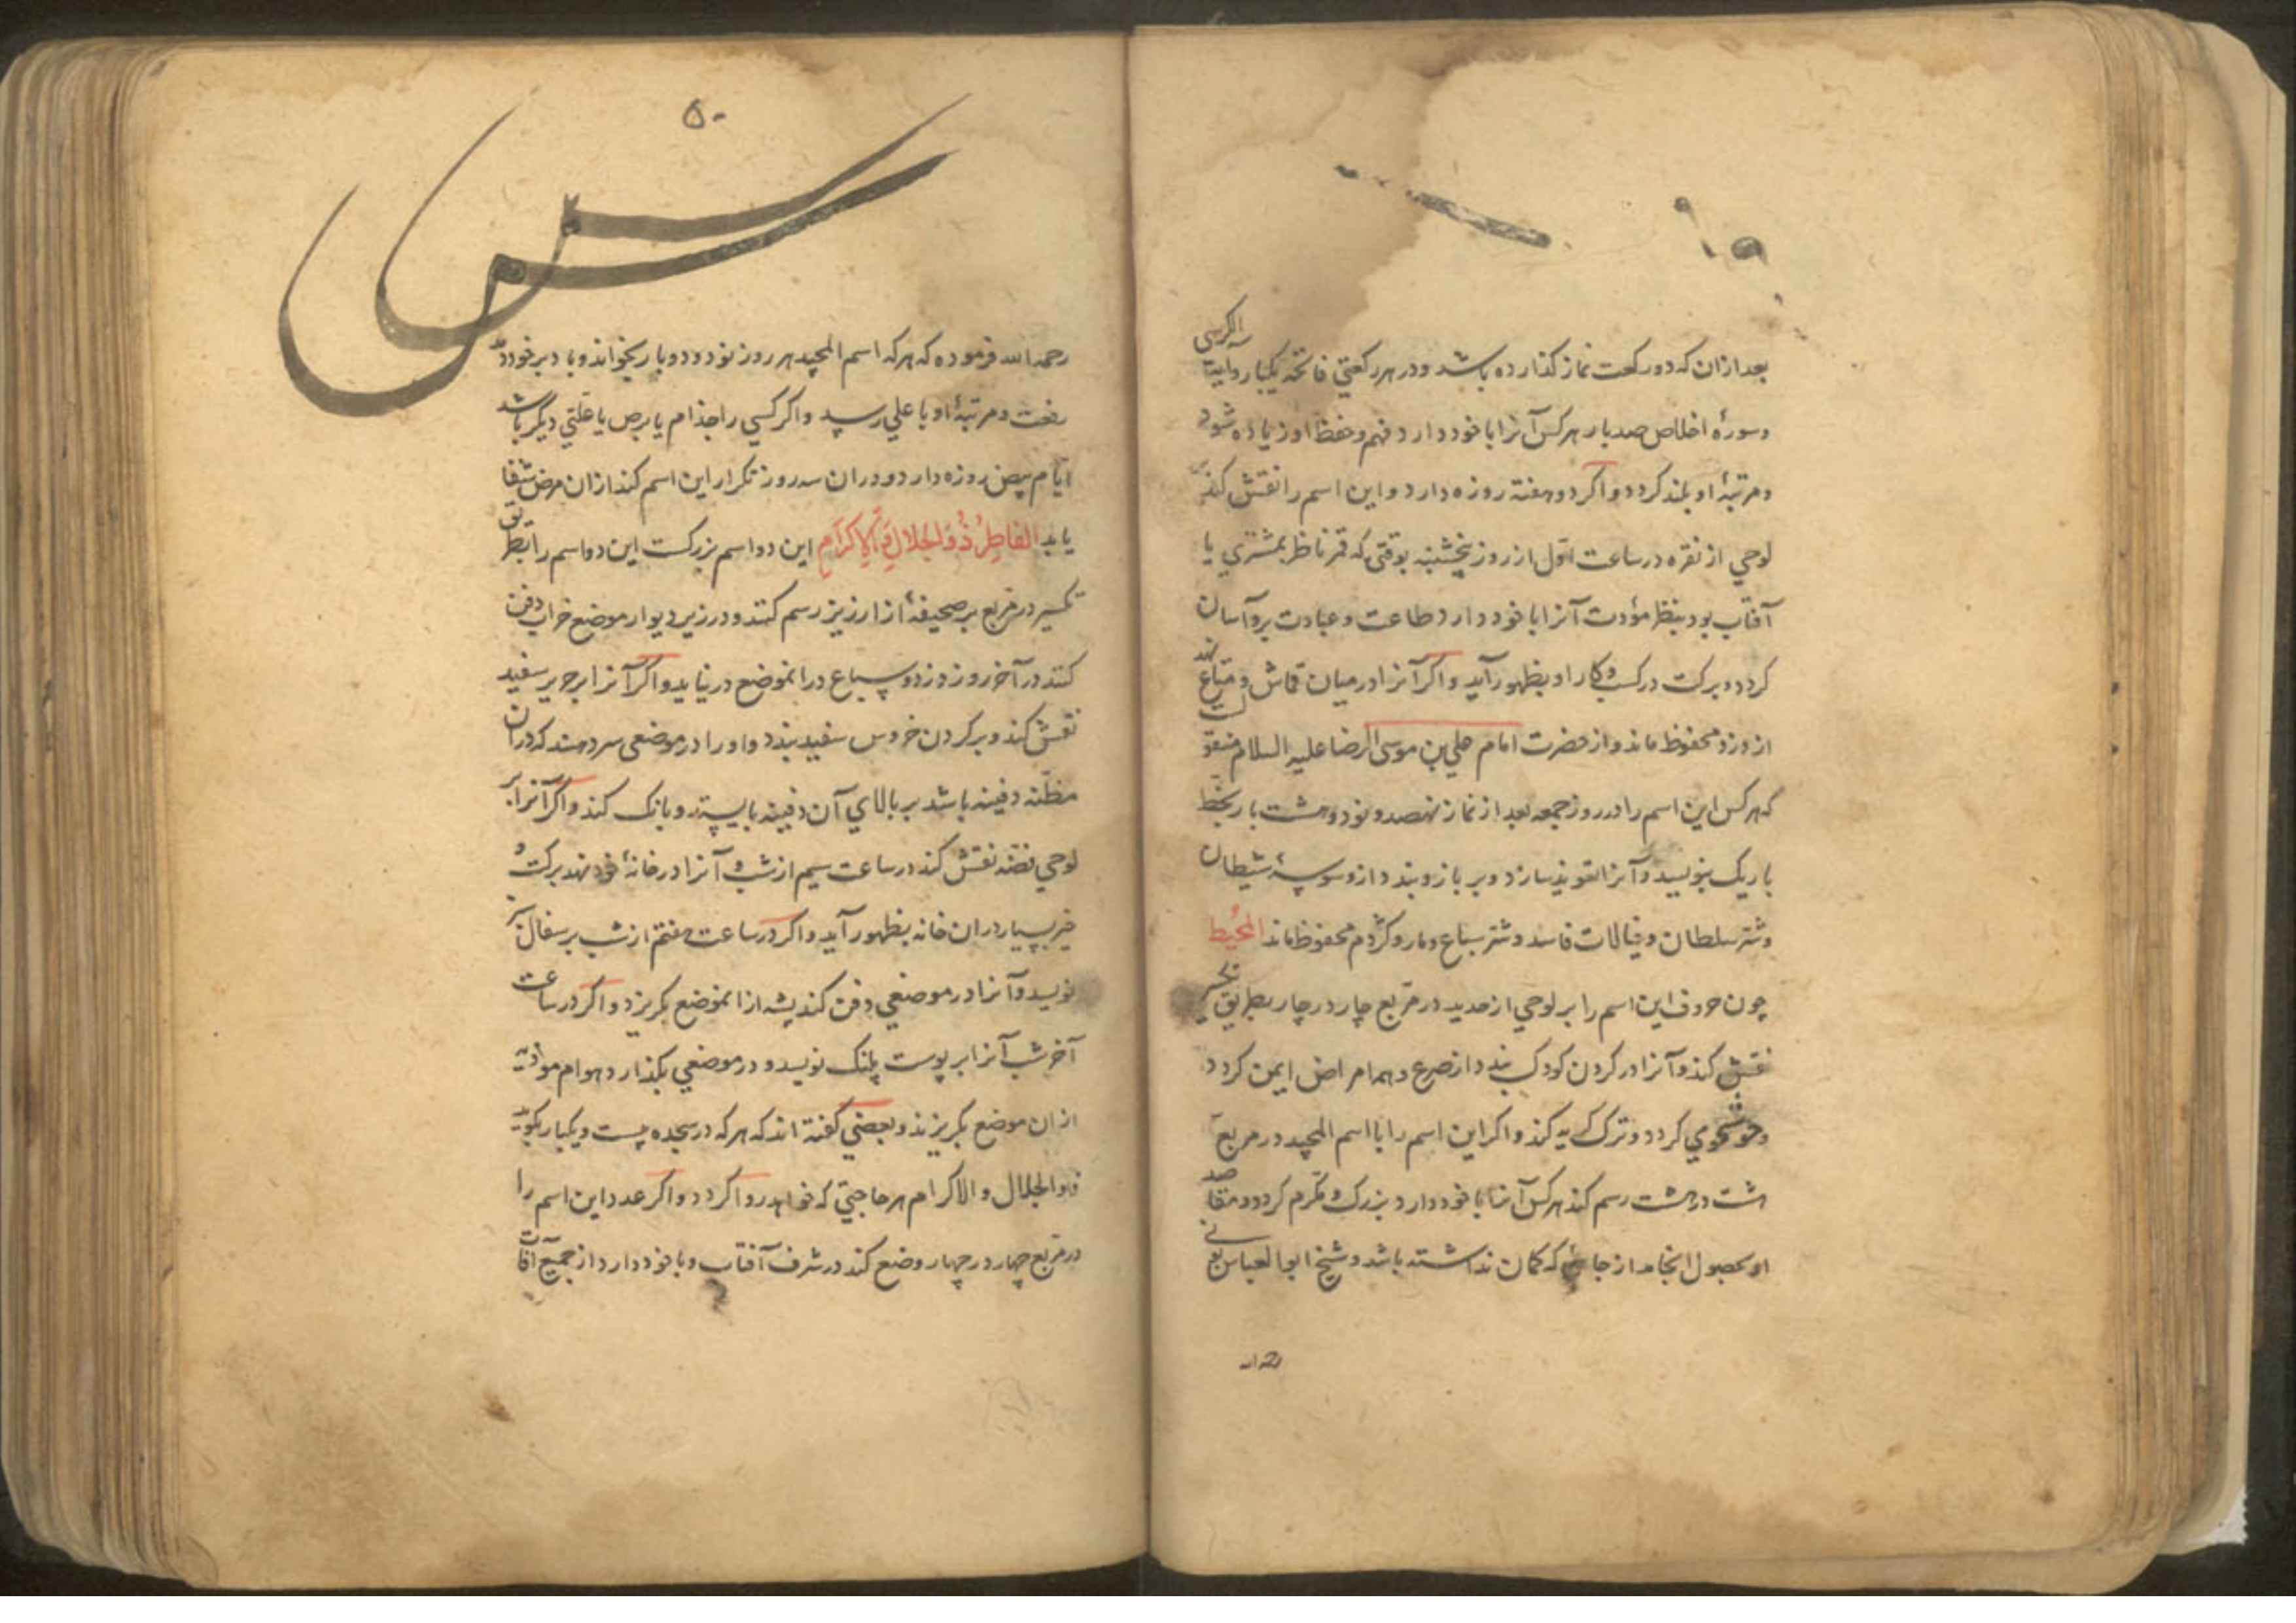 بعد ازان که دو رکعت نماز کذارده باشد و در هر رکعتی فاتحه یکبار و آیة الکرسی
و سورهٔ اخلاص صد بار هر کس آنرا با خود دارد فهم و حفظ او زیاده شود
و مرتبهٔ او بلند کردد و اکر دو هفته روزه دارد و این اسم را نقش کند بر
لوحی از نقره در ساعت اول از روز پنجشنبه بوقتی که قمر ناظر بمشتری یا
آفتاب بود بنظر مؤدت آنرا با خود دارد طاعت و عبادت برو آسان
کردد و برکت در کسب و کار او بظهور آید و اکر آنرا در میان قماش و متاع نهد
از دزد محفوظ ماند و از حضرت امام علی بن موسی الرضا علیه السلام منقولست
که هر کس این اسم را در روز جمعه بعد از نماز نهصد و نود و هشت بار بخط
باریک بنویسد و آنرا تعویذ سازد و بر بازو بندد از وسوسهٔ شیطان
و شر سلطان و خیالات فاسد و شر سباع و مار و کژدم محفوظ ماند المحیط
چون حروف این اسم را بر لوحی از حدید در مربع چار در چار بطریق تکسیر
نقش کند و آنرا در کردن کودک بندد از صرع و همه امراض ایمن کردد
و خوشخوی کردد و ترک کریه کند و اکر این اسم را با اسم المجید در مربع
هشت در هشت رسم کند هر کس آنرا با خود دارد بزرک و مکرم کردد و مقاصد
او بحصول انجامد از جائی که کمان نداشته باشد و شیخ ابو العباس بونی
رحمه
۵۰
رحمه الله فرموده که هر که اسم المجید هر روز نود و دو بار بخواند و باد بر خود دمد
رفعت و مرتبهٔ او باعلی رسید و اکر کسی را جذام یا برص یا علتی دیگر باشد
ایام بیض روزه دارد و دران سه روز تکرار این اسم کند ازان مرض شفا
یابد الفاطِرُ ذُو الجلالِ وَالإکرَامِ این دو اسم بزرکست این دو اسم را بطریق
تکسیر در مربع بر صحیفهٔ از ارزیز رسم کنند و در زیر دیوار موضع خراب دفن
کنند در آخر روز دزد و سباع در انموضع در نیاید و اکر آنرا بر حریر سفید
نقش کند و بر کردن خروس سفید بندد و او را در موضعی سر دهند که دران
مظنه دفینه باشد بر بالای آن دفینه بایستد و بانک کند و اکر آنرا بر
لوحی فضه نقش کند در ساعت سیم از شب و آنرا در خانهٔ خود نهد برکت و
خیر بسیار دران خانه بظهور آید و اکر در ساعت هفتم از شب بر سفال
نویسد و آنرا در موضعی دفن کند پشه از انموضع بکریزد و اکر در ساعت
آخر شب آنرا بر پوست پلنک نویسد و در موضعی بکذارد هوام موذیه
ازان موضع بکریزند و بعضی کفته اند که هر که در سجده بیست و یکبار بکوید
ذو الجلال و الاکرام هر حاجتی که خواهد روا کردد و اکر عدد این اسم را
در مربع چهار در چهار وضع کند در شرف آفتاب و با خود دارد از جمیع آفات